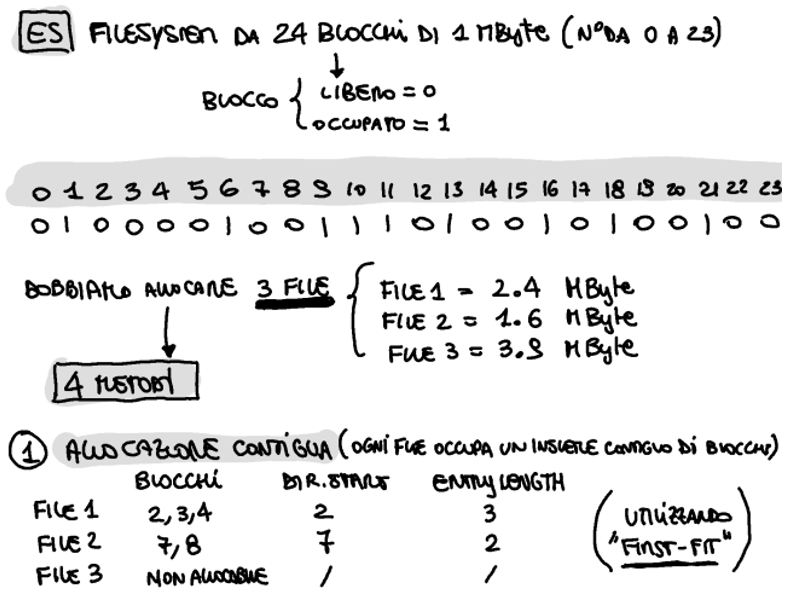 ES FILESYSTEM DA 24 BLOCCHI DI 1 MByte (N° DA 0 A 23)
BLOCCO { LIBERO = 0
OCCUPATO = 1
0 1 2 3 4 5 6 7 8 9 10 11 12 13 14 15 16 17 18 19 20 21 22 23
0 1 0 0 0 0 1 0 0 1 1 1 0 1 0 0 1 0 1 0 0 1 0 0
DOBBIAMO ALLOCARE 3 FILE { FILE 1 = 2.4 MByte
FILE 2 = 1.6 MByte
FILE 3 = 3.9 MByte
4 METODI
1 ALLOCAZIONE CONTIGUA (OGNI FILE OCCUPA UN INSIEME CONTIGUO DI BLOCCHI)
BLOCCHI DIR.START ENTRY LENGTH
FILE 1 2,3,4 2 3 (UTILIZZANDO
FILE 2 7,8 7 2 "FIRST-FIT")
FILE 3 NON ALLOCABILE / /